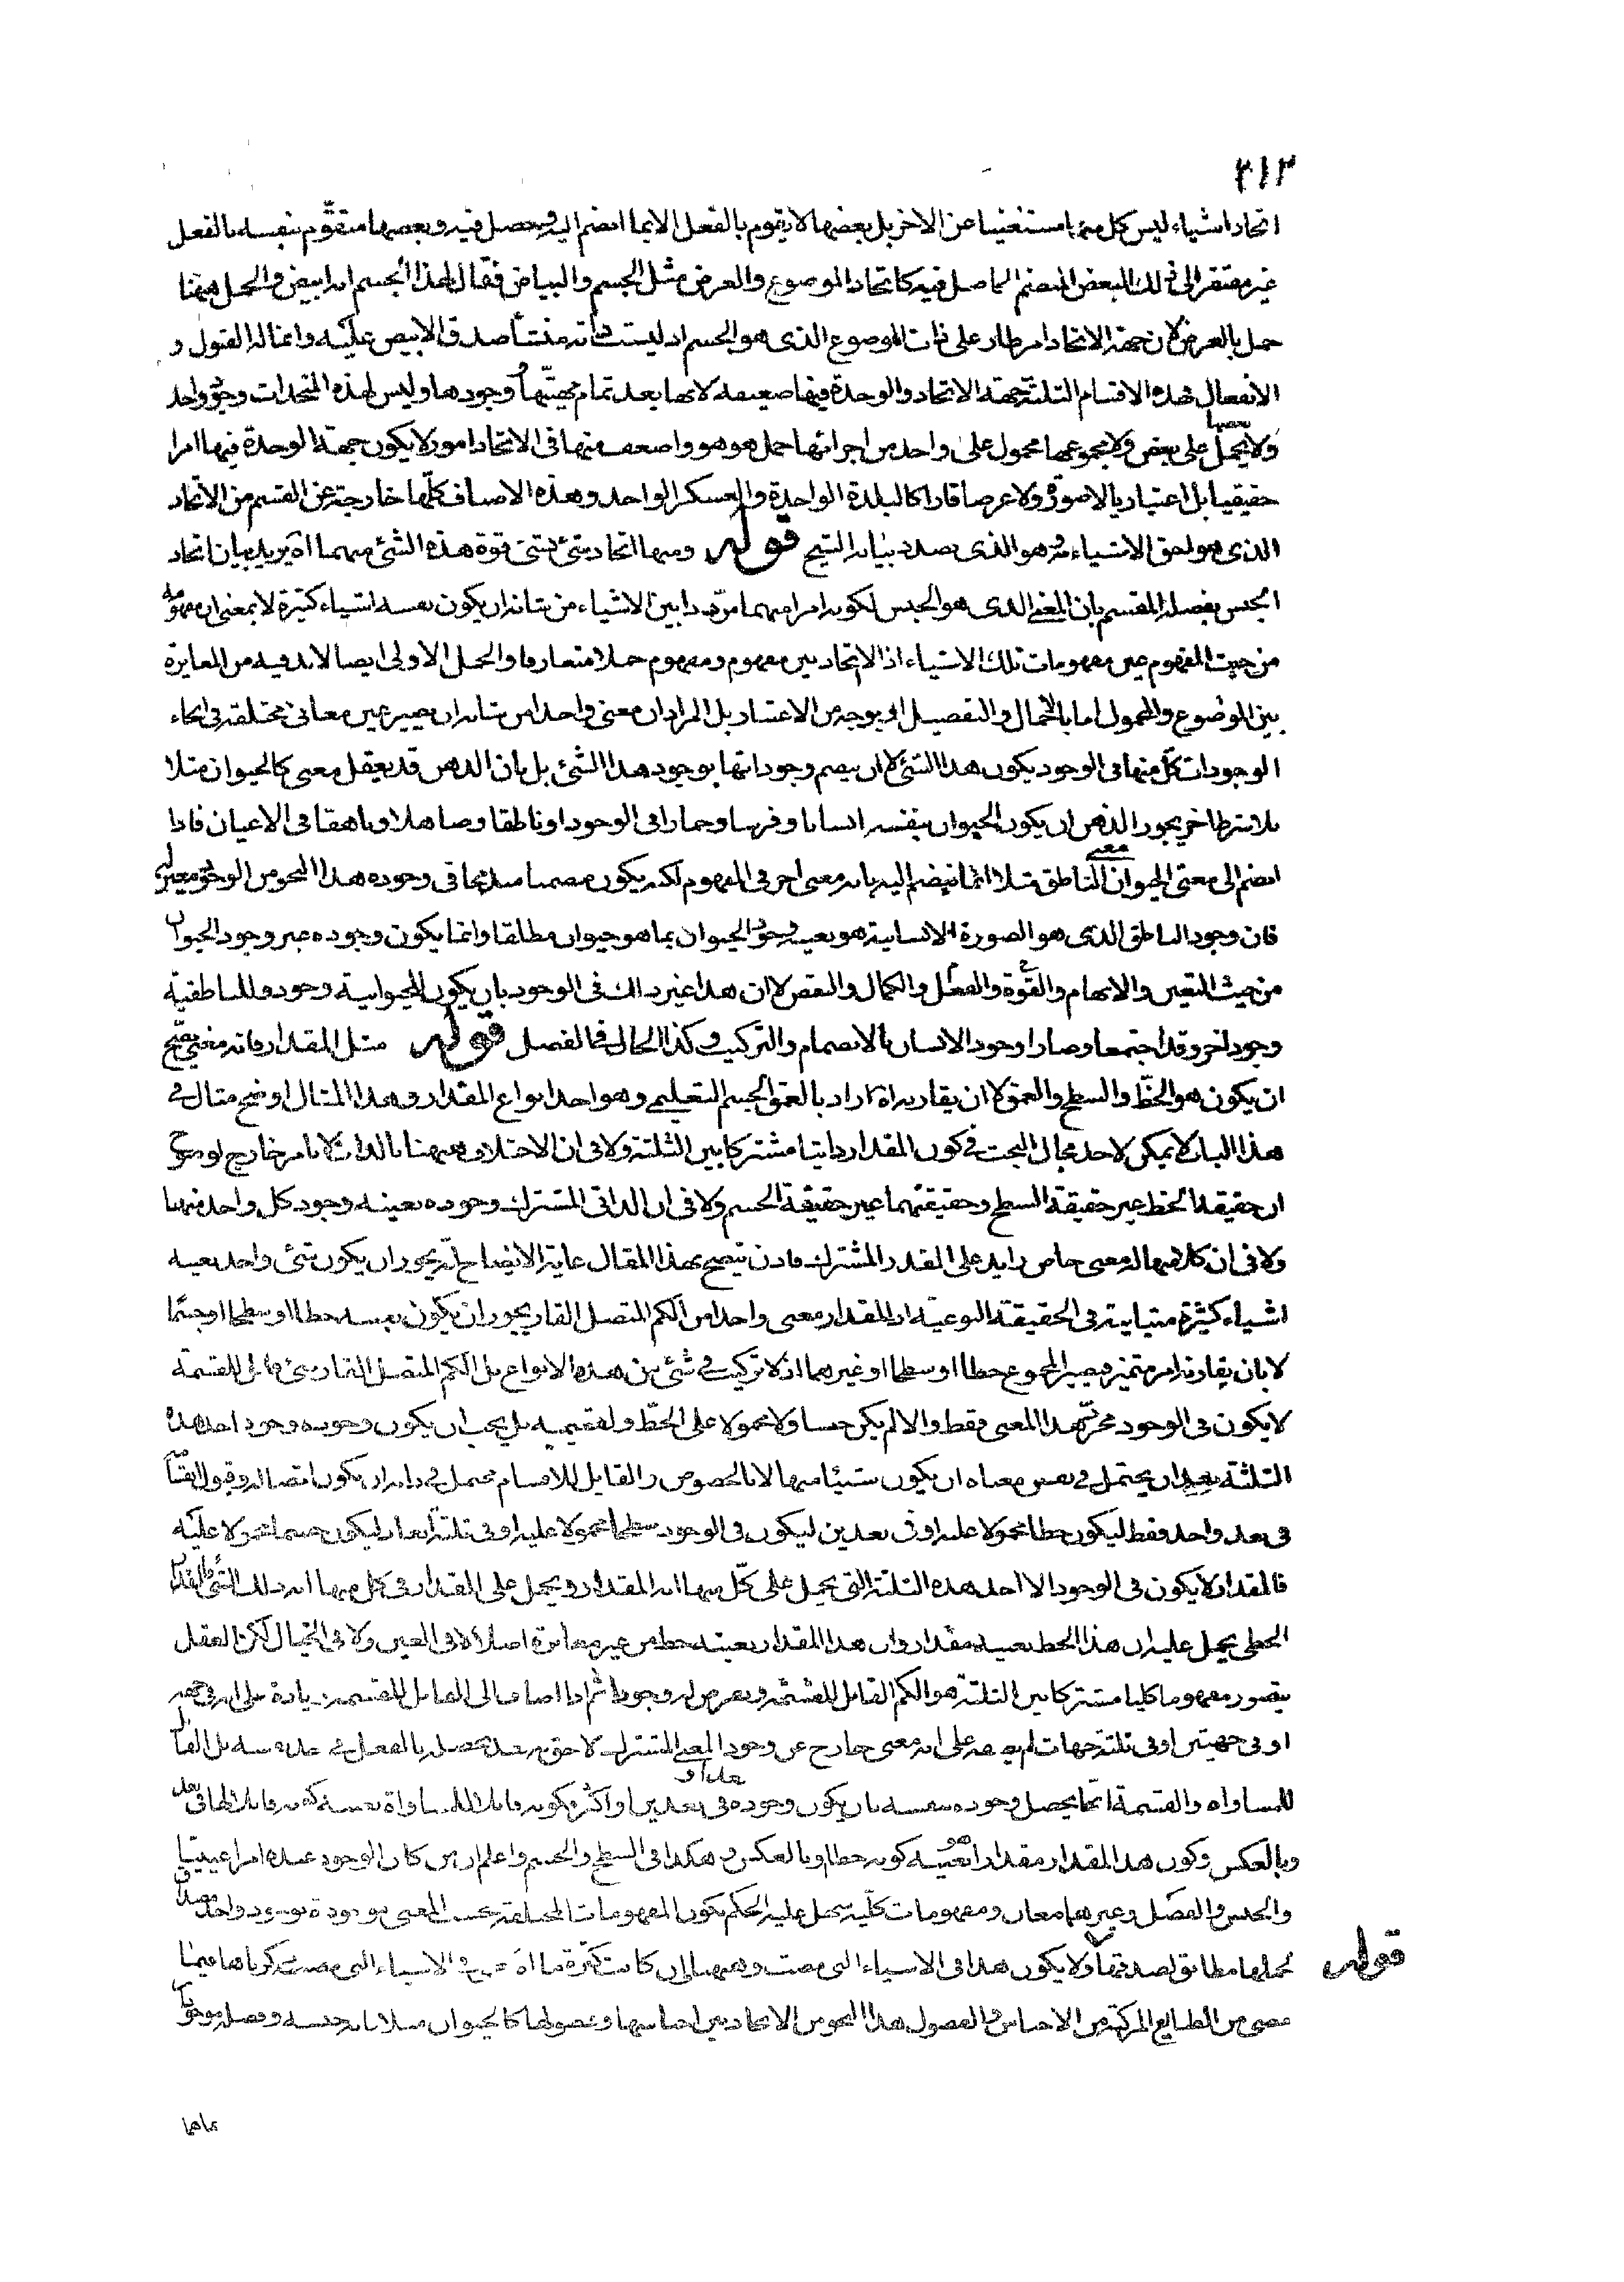 ٢١٣
اتحاد اشياء ليس كل منها مستغنيا عن الاخر بل بعضها لا يقوم بالفعل الا بما انضم اليه ويحصل فيه وبعضها متقوّم بنفسه بالفعل
غير مفتقر الى ذلك البعض المنضم الحاصل فيه كاتحاد الموضوع والعرض مثل الجسم والبياض فقال لهذا الجسم انه ابيض والحمل ههنا
حمل بالعرض لان جهة الاتحاد امر طار على ذات الموضوع الذى هو الجسم اذ ليست ذاته منشأ صدق الابيض عليه وانما له القبول و
الانفعال فهذه الاقسام الثلثة جهة الاتحاد والوحدة فيها ضعيفه لانها بعد تمام مهيتها ووجودها وليس لهذه المتحدات وجود واحد
ولا يحمل بعضها على بعض ولا مجموعها محمول على واحد من اجزائها حمل هو هو واضعف منها فى الاتحاد امور لا يكون جهة الوحدة فيها امرا
حقيقيا بل اعتباريا لا صورة ولا عرضا قارا كالبلدة الواحدة والعسكر الواحد وهذه الاصناف كلّها خارجة عن القسم من الاتحاد
الذى هو لحق الاشياء به هو الذى بصدد بيانه الشيخ قوله ومنها اتحاد شئ بشئ قوة هذه الشئ منهما اه يريد بيان اتحاد
الجنس بفصله المقسم بان المعنى الذى هو الجنس لكونه امرا مبهما مرددا بين الاشياء من شانه ان يكون نفسه اشياء كثيرة لا بمعنى ان مفهومه
من حيث المفهوم عين مفهومات تلك الاشياء اذ الاتحاد بين مفهوم ومفهوم حملا متعارفا والحمل الاولى ايضا لا بد فيه من المغايرة
بين الموضوع والمحمول اما بالاجمال والتفصيل او بوجه من الاعتبار بل المراد ان معنى واحدا من شانه ان يصير عين معانى مختلفة فى انحاء
الوجودات كل منها فى الوجود يكون هذا الشئ لا ان ينضم وجوداتها بوجود هذا الشئ بل بان الذهن قد يعقل معنى كالحيوان مثلا
بلا شرط اخر يجوز الذهن ان يكون الحيوان بنفسه انسانا وفرسا وحمارا فى الوجود او ناطقا وصاهلا وناهقا فى الاعيان فاذا
انضم الى معنى الحيوان معنى الناطق مثلا انما ينضم اليه بانه معنى اخر فى المفهوم لكنه يكون مضمنا مندمجا فى وجوده هذا النحو من الوجود معين له
فان وجود الناطق الذى هو الصورة الانسانية هو بعينه وجود الحيوان بما هو حيوان مطلقا وانما يكون وجوده غير وجود الحيوان
من حيث التعين والابهام والقوة والفعل والكمال والنقص لا ان هذا غير ذاك فى الوجود بان يكون للحيوانية وجود وللناطقية
وجود اخر وقد اجتمعا وصارا وجود الانسان بالانضمام والتركيب وكذا الحال فى الفصل قوله مثل المقدار فانه معنى يصح
ان يكون هو الخطّ والسطح والعمق لا ان يقارنه اه اراد بالعمق الجسم التعليمى وهو احد انواع المقدار وهذا المثال اوضح مثال فى
هذا الباب لا يمكن لاحد مجال البحث فى كون المقدار ذاتيا مشتركا بين الثلثة ولا فى ان الاختلاف بينها بالذات لا بامر خارج
ان حقيقة الخط غير حقيقة السطح وحقيقتهما غير حقيقة الجسم ولا فى ان الذاتى المشترك وجوده بعينه وجود كل واحد منها
ولا فى ان كلا منها له معنى خاص زايد على القدر المشترك فاذن يتضح بهذا المقال غاية الايضاح انه يجوز ان يكون شئ واحد بعينه
اشياء كثيرة متباينة فى الحقيقة النوعية اذ المقدار معنى واحد من الكم المتصل القار يجوز ان يكون بنفسه خطا او سطحا او جسما
لا بان يقارنه امر متميز فيصير المجموع خطا او سطحا او غيرهما اذ لا تركيب فى شئ من هذه الانواع بل الكم المتصل القار شئ قابل للقسمة
لا يكون فى الوجود مجرّد هذا المعنى فقط والا لم يكن جنسا ولا محمولا على الخطّ ولقسيميه بل يجب ان يكون وجوده وجود احد هذه
الثلثة بعد ان يحتمل فى نفس معناه ان يكون شيئا منها لا بالخصوص والقابل للاقسام محتمل فى ذاته ان يكون اتصاله وقبول القسمة
فى بعد واحد فقط ليكون خطا محمولا عليه او فى بعدين ليكون فى الوجود سطحا محمولا عليه او فى ثلثة ابعاد ليكون جسما محمولا عليه
فالمقدار لا يكون فى الوجود الا احد هذه الثلثة التى يحمل على كلّ منها انه المقدار ويحمل على المقدار فى كل منها انه ذلك الشئ فالمقدار
الخطى يحمل عليه ان هذا الخط بعينه مقدار وان هذا المقدار بعينه خط من غير مغايرة اصلا لا فى العين ولا فى الخيال لكن العقل
يتصور مفهوما كليا مشتركا بين الثلثة هو الكم القابل للقسمة ويعرض له وجودا ثم اذا اضاف الى القابل للقسمة زيادة على انه فى جهة
او فى جهتين او فى ثلثة جهات لم يضفه على انه معنى خارج عن وجود المعنى المشترك لاحق به بعد تحصله بالفعل فى حد نفسه بل القابل
للمساواة والقسمة انما يحصل وجوده بنفسه بان يكون وجوده فى بعد او بعدين او اكثر فكونه قابلا للمساواة بعينه كونه قابلا لها فى بعد
وبالعكس وكون هذا المقدار مقدارا هو بعينه كونه خطا وبالعكس وهكذا فى السطح والجسم واعلم ان من كان الوجود عنده امرا عينيا
والجنس والفصل وغيرهما معان ومفهومات كلية سهل عليه الحكم بكون المفهومات المختلفة بحسب المعنى موجودة بوجود واحد
لحملها مطابق لصدقها قوله ولا يكون هذا فى الاشياء التى مضت وههنا وان كانت كثرة ما اه الاشياء التى مضت ذكرناها فيما
مضى من الطبايع المركبة من الاجناس والفصول هذا النحو من الاتحاد بين اجناسها وفصولها كالحيوان مثلا بانه جنسه وفصله موجودان